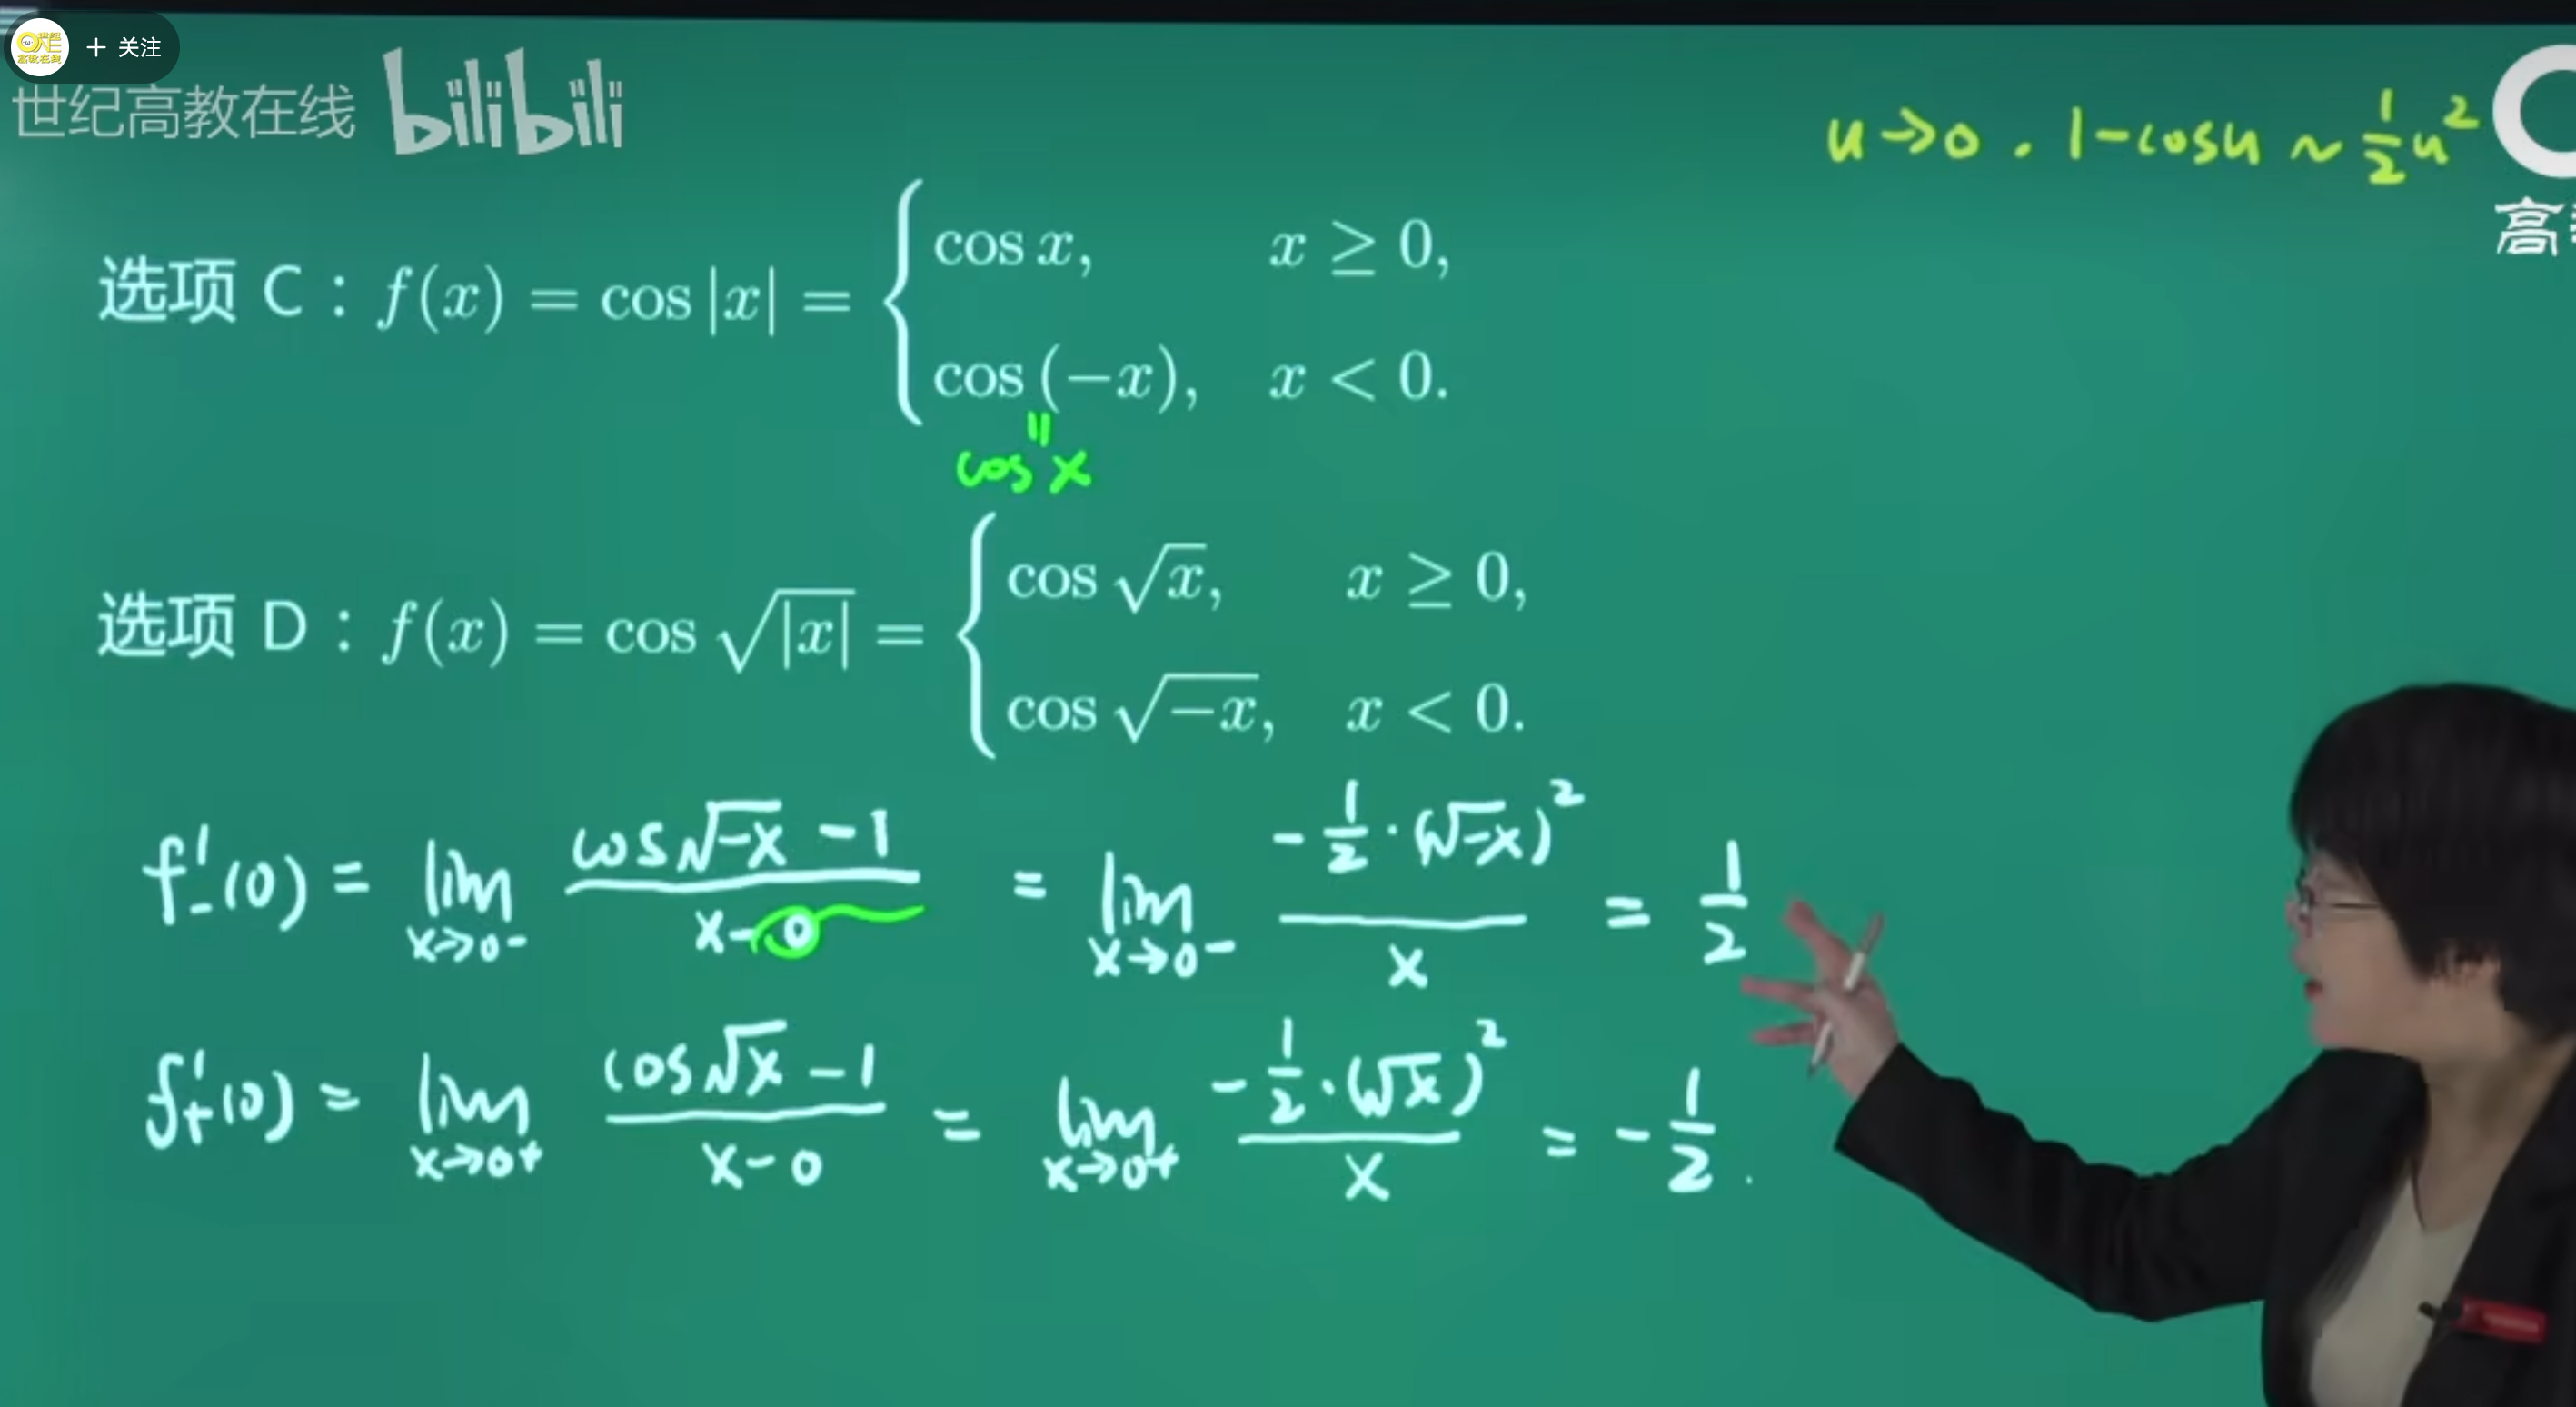 + 关注
世纪高教在线 bilibili
u→0 . 1-cosu ~ 1/2 u²
高
选项 C：f(x) = cos|x| = { cos x, x ≥ 0,
cos(−x), x < 0.
=
cos x
选项 D：f(x) = cos √|x| = { cos √x, x ≥ 0,
cos √−x, x < 0.
f'₋(0) = lim x→0− (cos√−x − 1)/(x−0) = lim x→0− (−1/2 · (√−x)²)/x = 1/2
f'₊(0) = lim x→0+ (cos√x − 1)/(x−0) = lim x→0+ (−1/2 · (√x)²)/x = −1/2 .